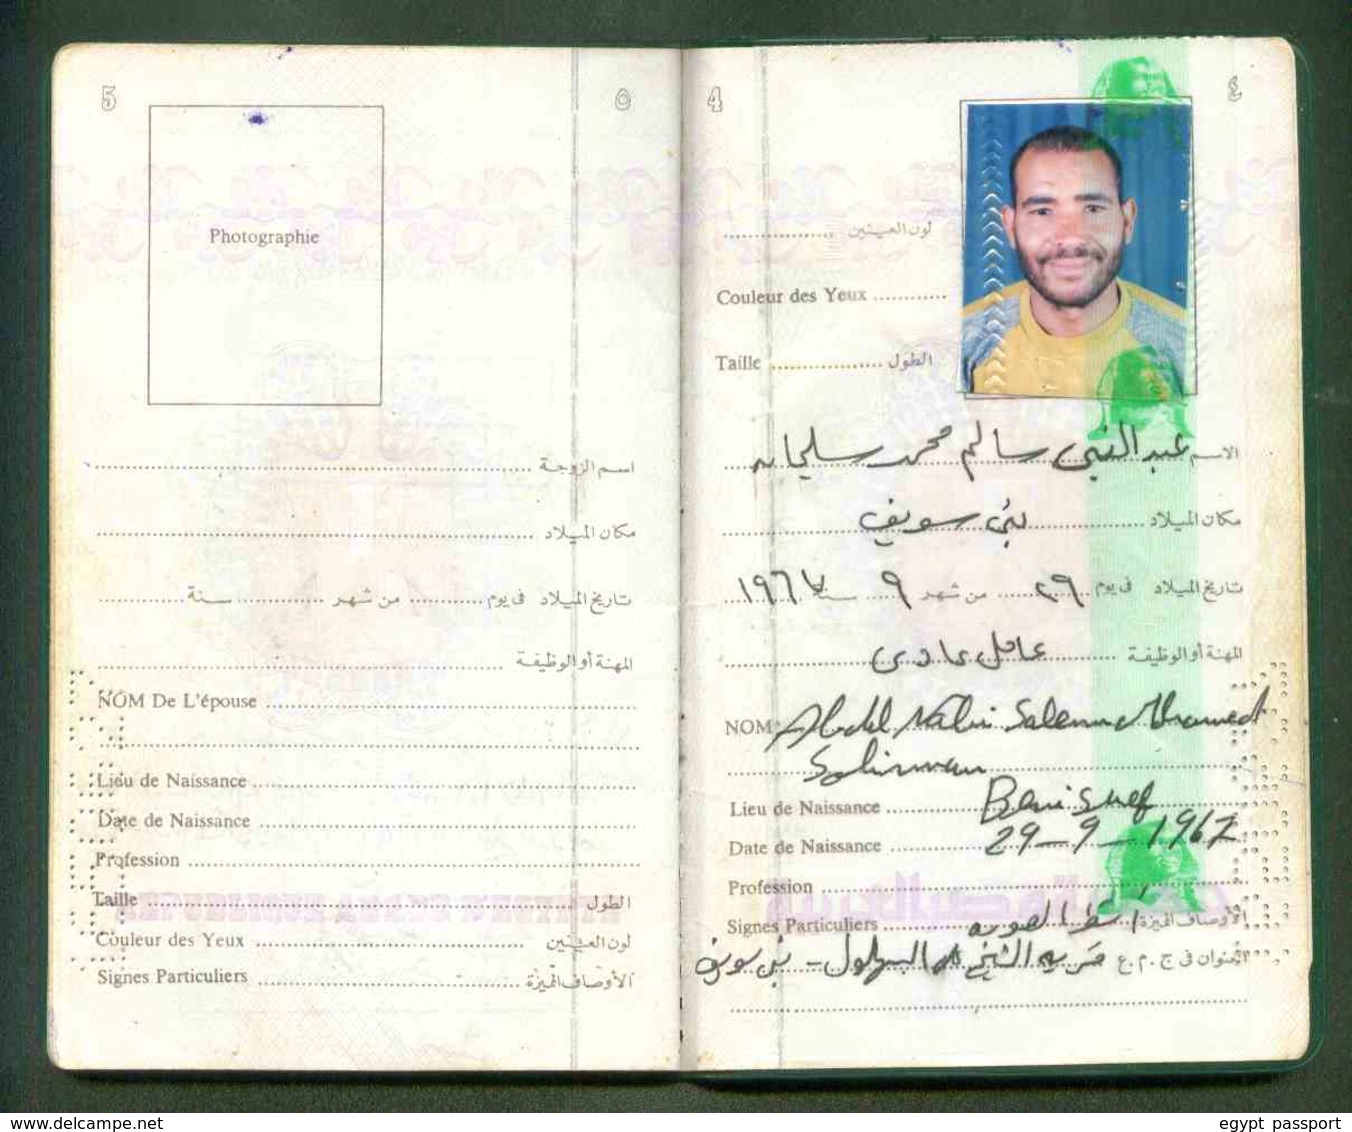 5 ٥
Photographie
اسم الزوجة
مكان الميلاد
تاريخ الميلاد فى يوم من شهر سنة
المهنة أو الوظيفة
NOM De L'épouse
Lieu de Naissance
Date de Naissance
Profession
Taille الطول
Couleur des Yeux لون العينين
Signes Particuliers الأوصاف المميزة
4 ٤
لون العينين
Couleur des Yeux
Taille الطول
الاسم عبد النبى سالم محمد سليمان
مكان الميلاد بنى سويف
تاريخ الميلاد فى يوم ٢٩ من شهر ٩ سنة ١٩٦٧
المهنة أو الوظيفة عامل عادى
NOM Abdel Nabi Salem Mohamed
Soliman
Lieu de Naissance Beni suef
Date de Naissance 29-9-1967
Profession
Signes Particuliers الأوصاف المميزة
العنوان فى ج.م.ع الشيخ البهلول - بنى سويف
www.delcampe.net
egypt passport